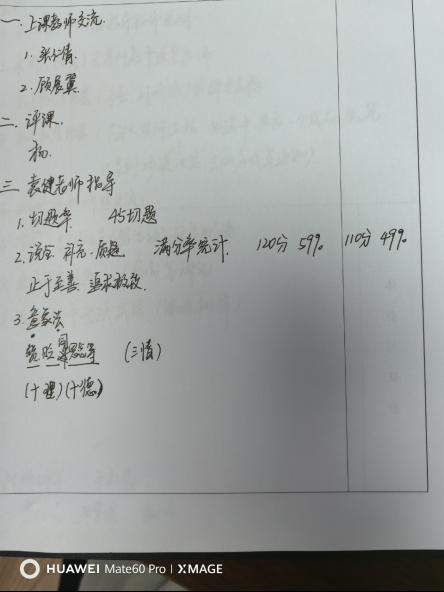 一、上课教师交流.
1. 张仁情.
2. 顾晨翼.
二、评课.
杨.
三 袁健老师指导
1. 切题率 45切题
2. 补充.质疑 满分率统计. 120分 59%. 110分 49%.
止于至善.追求极致.
3. 意象
同
(三情)
(十理)(十德)
HUAWEI Mate60 Pro | XMAGE